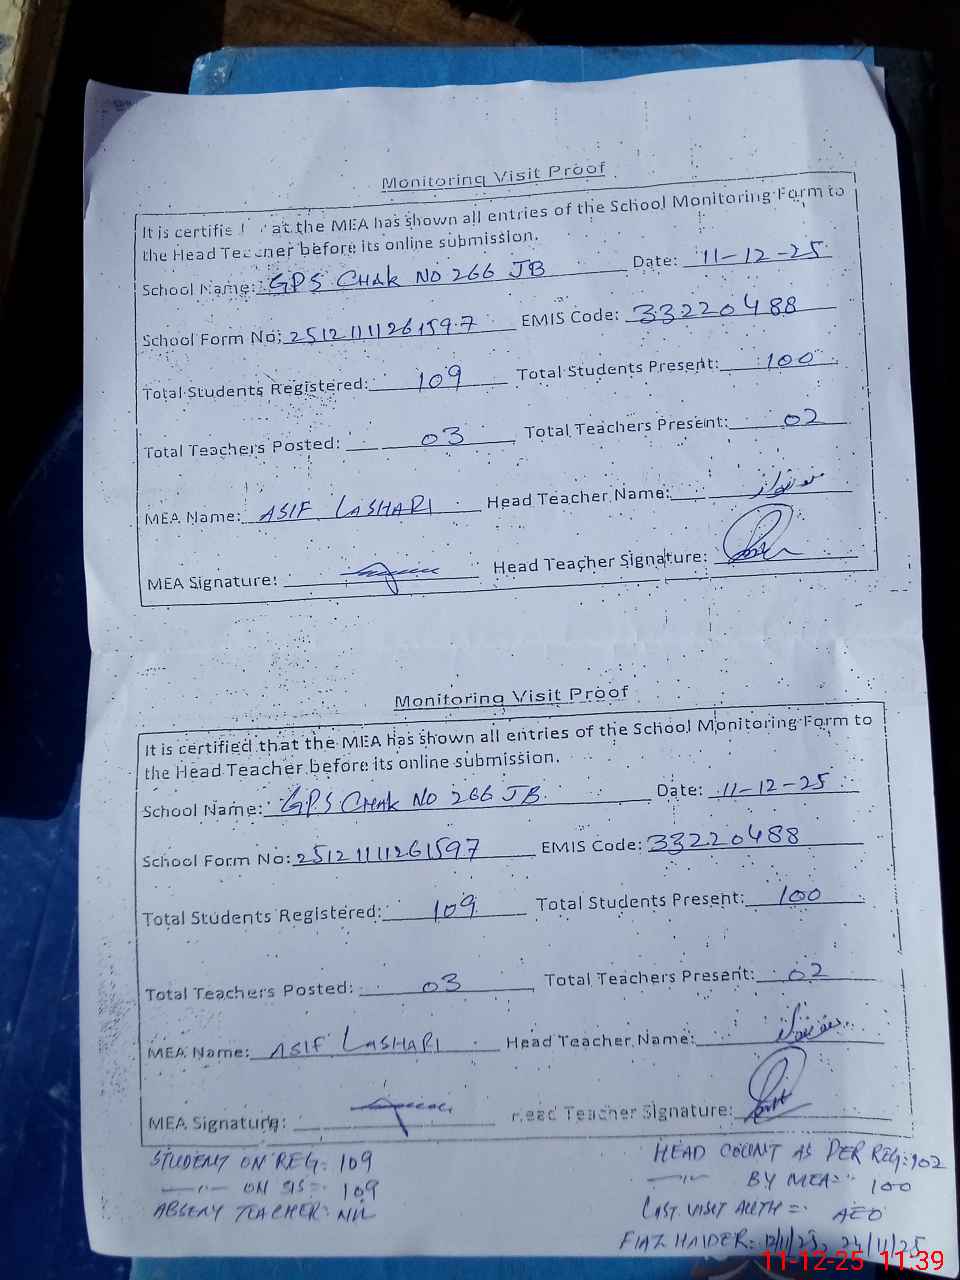 Monitoring Visit Proof
It is certifie at the MEA has shown all entries of the School Monitoring Form to
the Head Teacher before its online submission.
School Name: GPS CHAK NO 266 JB Date: 11-12-25
School Form No: 25121111261597 EMIS Code: 33220488
Total Students Registered: 109 Total Students Present: 100
Total Teachers Posted: 03 Total Teachers Present: 02
MEA Name: ASIF LASHARI Head Teacher Name:
MEA Signature: Head Teacher Signature:
Monitoring Visit Proof
It is certified that the MEA has shown all entries of the School Monitoring Form to
the Head Teacher before its online submission.
School Name: GPS CHAK NO 266 JB Date: 11-12-25
School Form No: 25121111261597 EMIS Code: 33220488
Total Students Registered: 109 Total Students Present: 100
Total Teachers Posted: 03 Total Teachers Present: 02
MEA Name: ASIF LASHARI Head Teacher Name:
MEA Signature: ead Teacher Signature:
STUDENT ON REG: 109 HEAD COUNT AS PER REG: 102
—"— ON SIS =: 109 —"— BY MEA = 100
ABSENT TEACHER: NIL LAST VISIT AUTH =: AEO
FIAZ HAIDER: 24/11/25
11-12-25 11:39